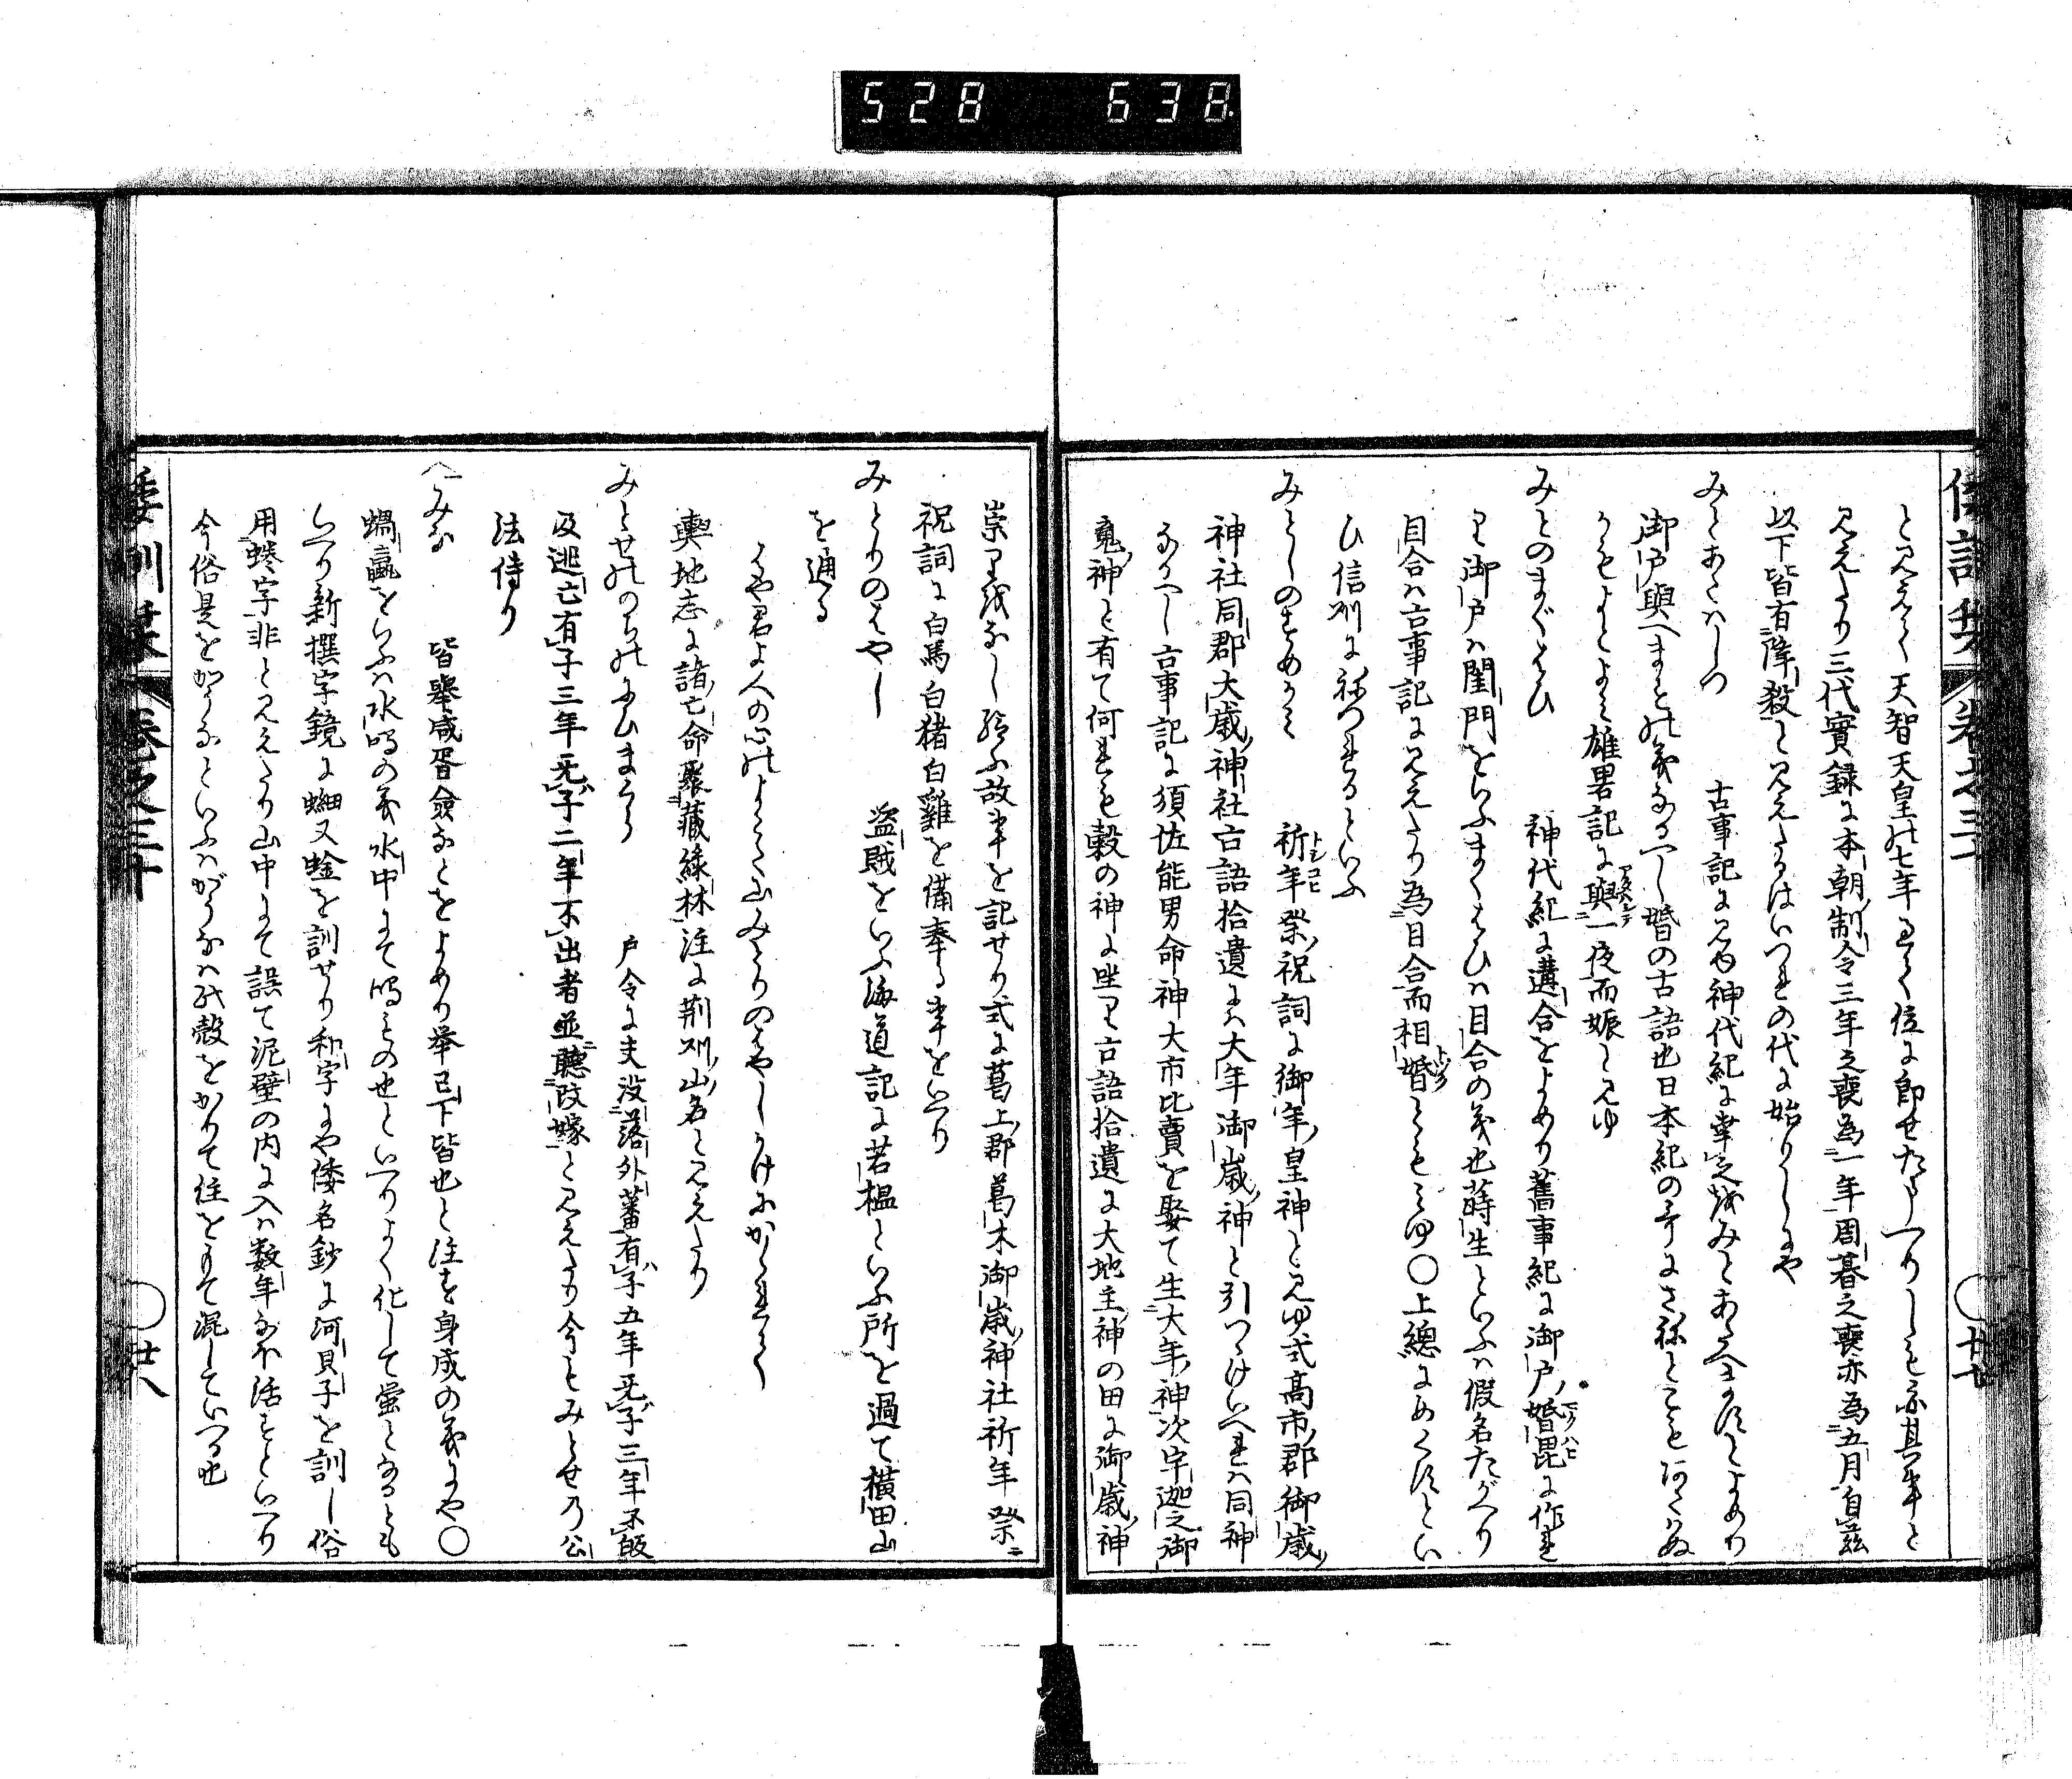 528 638
倭訓栞 巻之三十 ○廿七
と見えて天智天皇の七年にして位に即せたまへりしも亦其事と
見えたり三代實録に本朝制令三年之喪為一年周碁之喪亦為五月自茲
以下皆有降殺と見えたるはいつれの代に始りしにや
みとあたはしつ 古事記に見ゆ神代紀に幸之をみとあたはすとよめり
御戸與へまとの義なるへし婚の古語也日本紀の哥にさねとこもあたはぬ
かもよとよみ雄畧記に與一夜而娠と見ゆ
みとのまぐはひ 神代紀に遘合をよめり舊事紀に御戸婚毘に作れ
り御戸は閨門をいふまくはひは目合の義也蒔生といふは假名たがへり
目合は古事記に見えたり為目合而相婚ともみゆ○上總にめくすとい
ひ信州にねつるといふ
みとしのすめかみ 祈年祭祝詞に御年皇神と見ゆ式高市郡御歳
神社同郡大歳神社古語拾遺には大年御歳神と引つゝけいへれは同神
なるへし古事記に須佐能男命神大市比賣を娶て生大年神次宇迦之御
魂神と有て何れも穀の神に坐り古語拾遺に大地主神の田に御歳神
崇りをなし給ふ故事を記せり式に葛上郡葛木御歳神社祈年祭
祝詞に白馬白猪白雞を備奉る事をいへり
みとりのはやし 盗賊をいふ海道記に若榲といふ所を過て横田山
を通る
はや君よ人の心のよこた山みとりのはやしかけにかくれて
輿地志に諸亡命聚藏緑林注に荆州山名と見えたり
みとせのゝちのにひまくら 戸令に夫没落外蕃有子五年无子三年不皈
及逃亡有子三年无子二年不出者並聽改嫁と見えたり今もみとせ乃公
法侍り
へみな 皆舉咸胥僉なとをよめり举已下皆也と注を身成の義にや○
蝸蠃をいふは水鳴の義水中にて鳴もの也といへりよく化して蛍となるとも
いへり新撰字鏡に蜠又蜦を訓せり和字にや倭名鈔に河貝子を訓し俗
用蜷字非と見えたり山中にて誤て泥壁の内に入は数年なほ活すといへり
今俗是をがうなといふはがうなはの殻をかりて住をもて混していへる也
倭訓栞 巻之三十 ○廿八